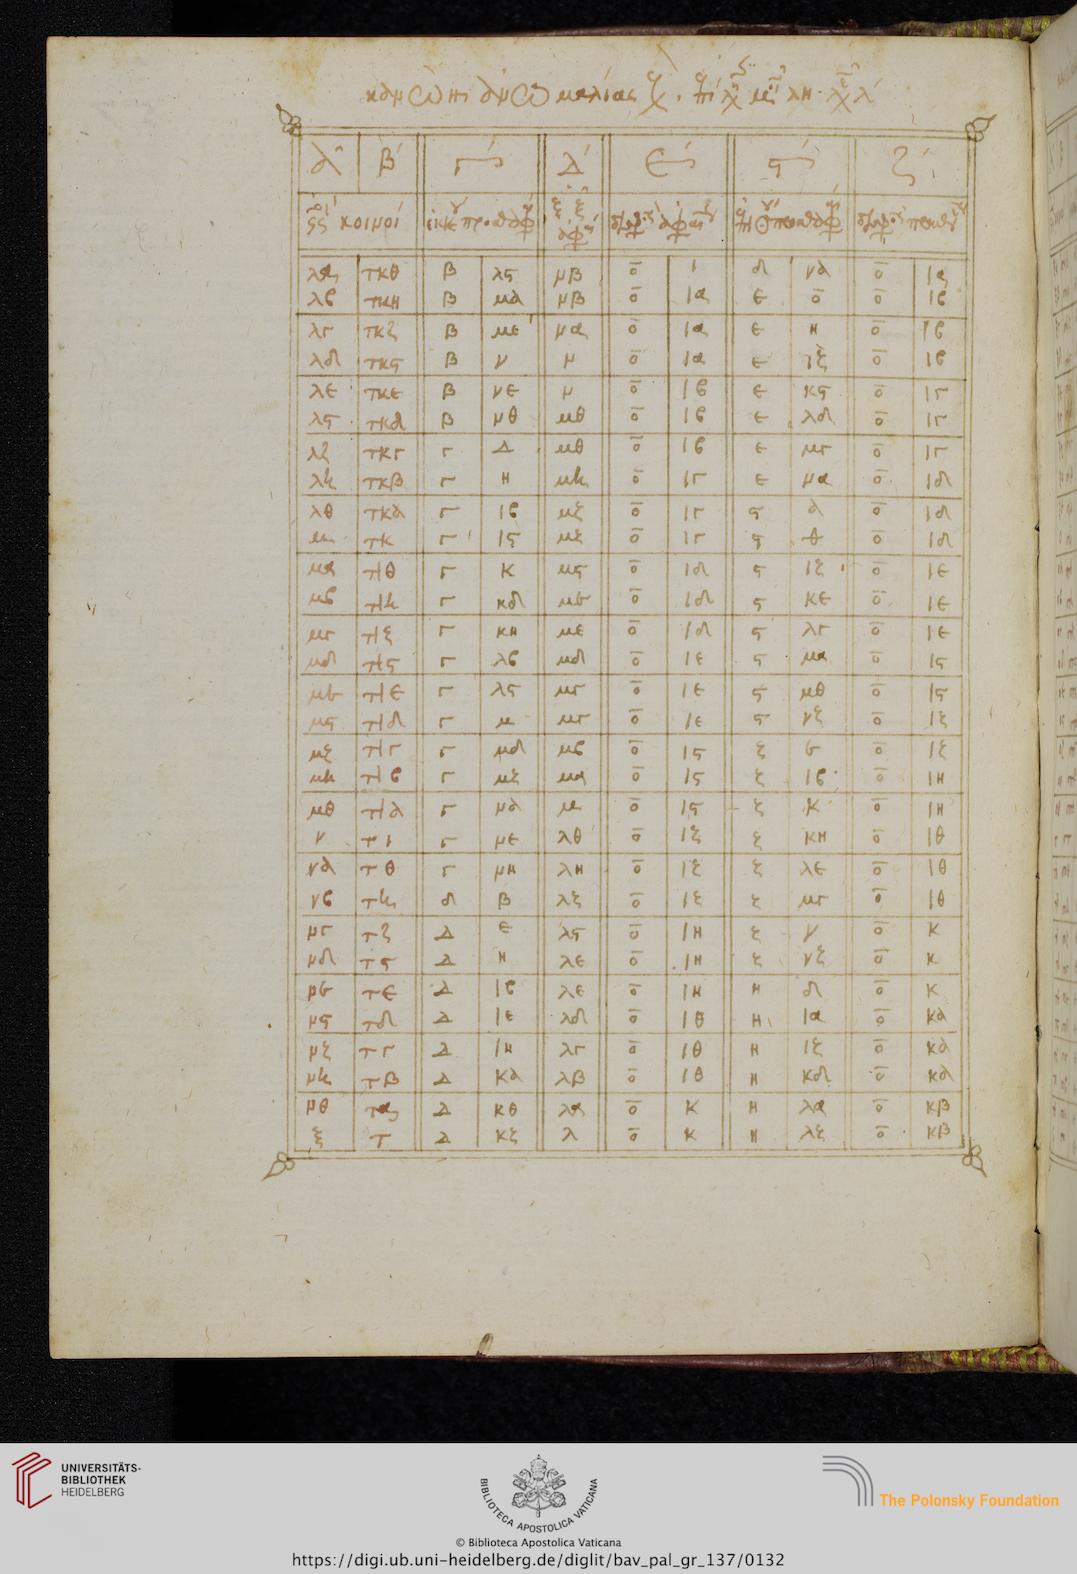 α β γ Δ Ε ϛ ζ
κοινοί
λα τκθ β λϛ μβ ο ι δ να ο ια
λβ τκη β μα μβ ο ια ε ο ο ιβ
λγ τκζ β με μα ο ια ε η ο ιβ
λδ τκϛ β ν μ ο ια ε ιζ ο ιβ
λε τκε β νε μ ο ιβ ε κϛ ο ιγ
λϛ τκδ β νθ μθ ο ιβ ε λδ ο ιγ
λζ τκγ γ Δ μθ ο ιβ ε μγ ο ιγ
λη τκβ γ η μη ο ιγ ε μα ο ιδ
λθ τκα γ ιβ μζ ο ιγ ϛ α ο ιδ
μ τκ γ ιϛ μζ ο ιγ ϛ θ ο ιδ
μα τιθ γ κ μϛ ο ιδ ϛ ιζ ο ιε
μβ τιη γ κδ με ο ιδ ϛ κε ο ιε
μγ τιζ γ κη με ο ιδ ϛ λγ ο ιε
μδ τιϛ γ λβ μδ ο ιε ϛ μα ο ιϛ
με τιε γ λϛ μγ ο ιε ϛ μθ ο ιϛ
μϛ τιδ γ μ μγ ο ιε ϛ νζ ο ιζ
μζ τιγ γ μδ μβ ο ιϛ ζ ε ο ιζ
μη τιβ γ μζ μα ο ιϛ ζ ιβ ο ιη
μθ τια γ μα μ ο ιϛ ζ κ ο ιη
ν τι γ με λθ ο ιζ ζ κη ο ιθ
να τθ γ μη λη ο ιζ ζ λε ο ιθ
νβ τη δ β λζ ο ιζ ζ μγ ο ιθ
μγ τζ Δ ε λϛ ο ιη ζ ν ο κ
μδ τϛ Δ η λε ο ιη ζ νζ ο κ
με τε Δ ιβ λε ο ιη η δ ο κ
μϛ τδ Δ ιε λδ ο ιθ η ια ο κα
μζ τγ Δ ιη λγ ο ιθ η ιζ ο κα
μη τβ Δ κα λβ ο ιθ η κδ ο κα
μθ τα Δ κθ λα ο κ η λα ο κβ
ξ τ Δ κζ λ ο κ η λζ ο κβ
UNIVERSITÄTS-
BIBLIOTHEK
HEIDELBERG
BIBLIOTECA APOSTOLICA VATICANA
The Polonsky Foundation
© Biblioteca Apostolica Vaticana
https://digi.ub.uni-heidelberg.de/diglit/bav_pal_gr_137/0132